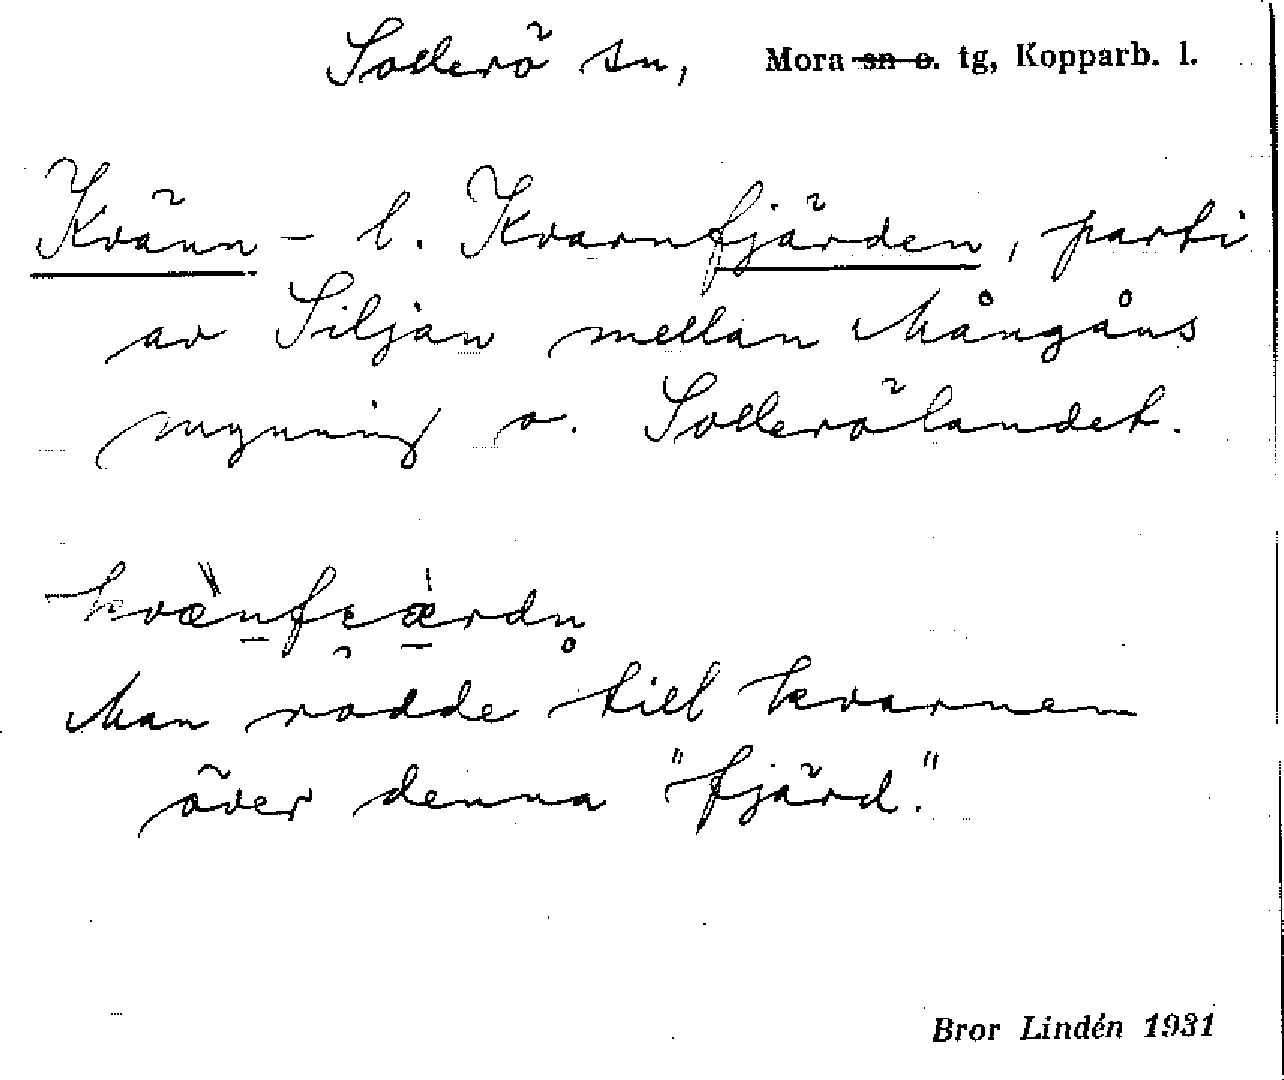 Sollerö sn, Mora sn o. tg, Kopparb. l.
Kvänn- l. Kvarnfjärden, parti
av Siljan mellan Mångåns
mynning o. Sollerölandet.
Man rodde till kvarnen
över denna "fjärd."
Bror Lindén 1931